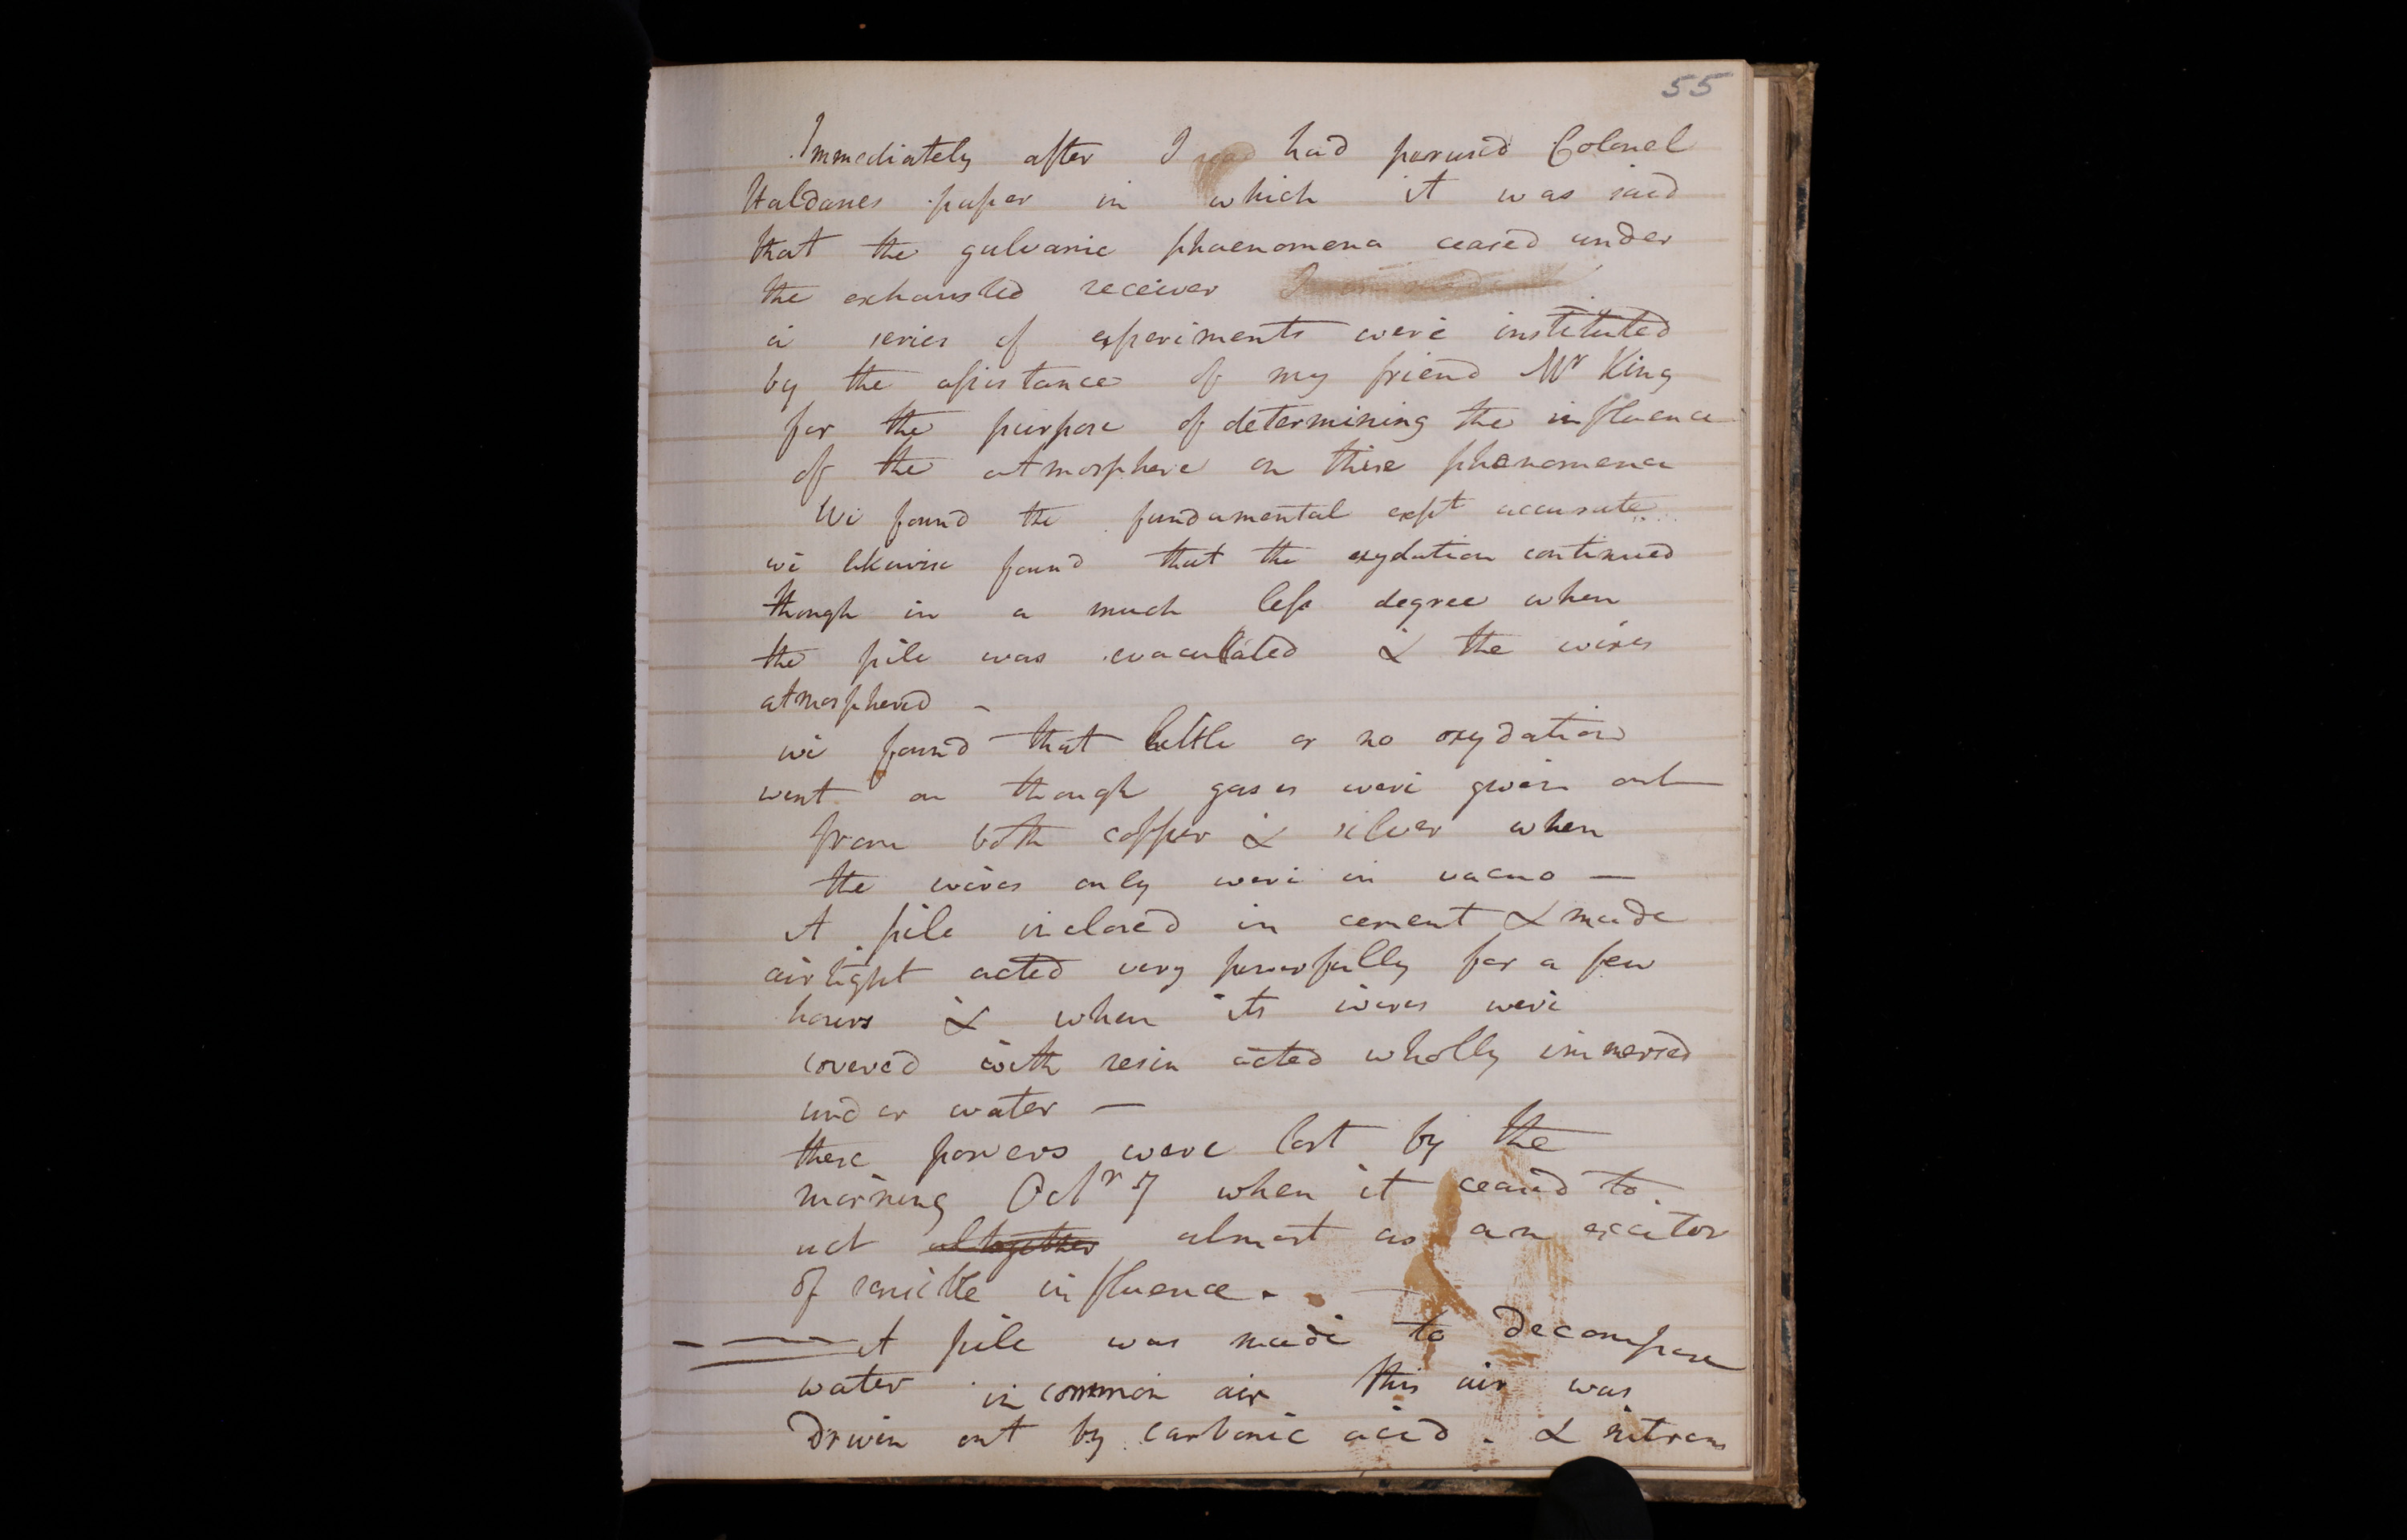 55
Immediately after I had perused Colonel
Haldanes paper in which it was said
that the galvanic phaenomena ceased under
the exhausted receiver
a series of experiments were instituted
by the assistance of my friend Mr King
for the purpose of determining the influence
of the atmosphere on these phenomena
We found the fundamental expt accurate
we likewise found that the oxydation continued
though in a much less degree when
the pile was evacuated & the wires
atmosphered -
we found that little or no oxydation
went on though gases were given out
from both copper & silver when
the wires only were in vacuo —
A pile inclosed in cement & made
airtight acted very powerfully for a few
hours & when its wires were
covered with resin acted wholly immersed
under water —
these powers were lost by the
morning Octr 7 when it ceased to
act altogether almost as an excitor
of sensible influence.
A pile was made to decompose
water in common air this air was
Driven out by carbonic acid. & nitrous